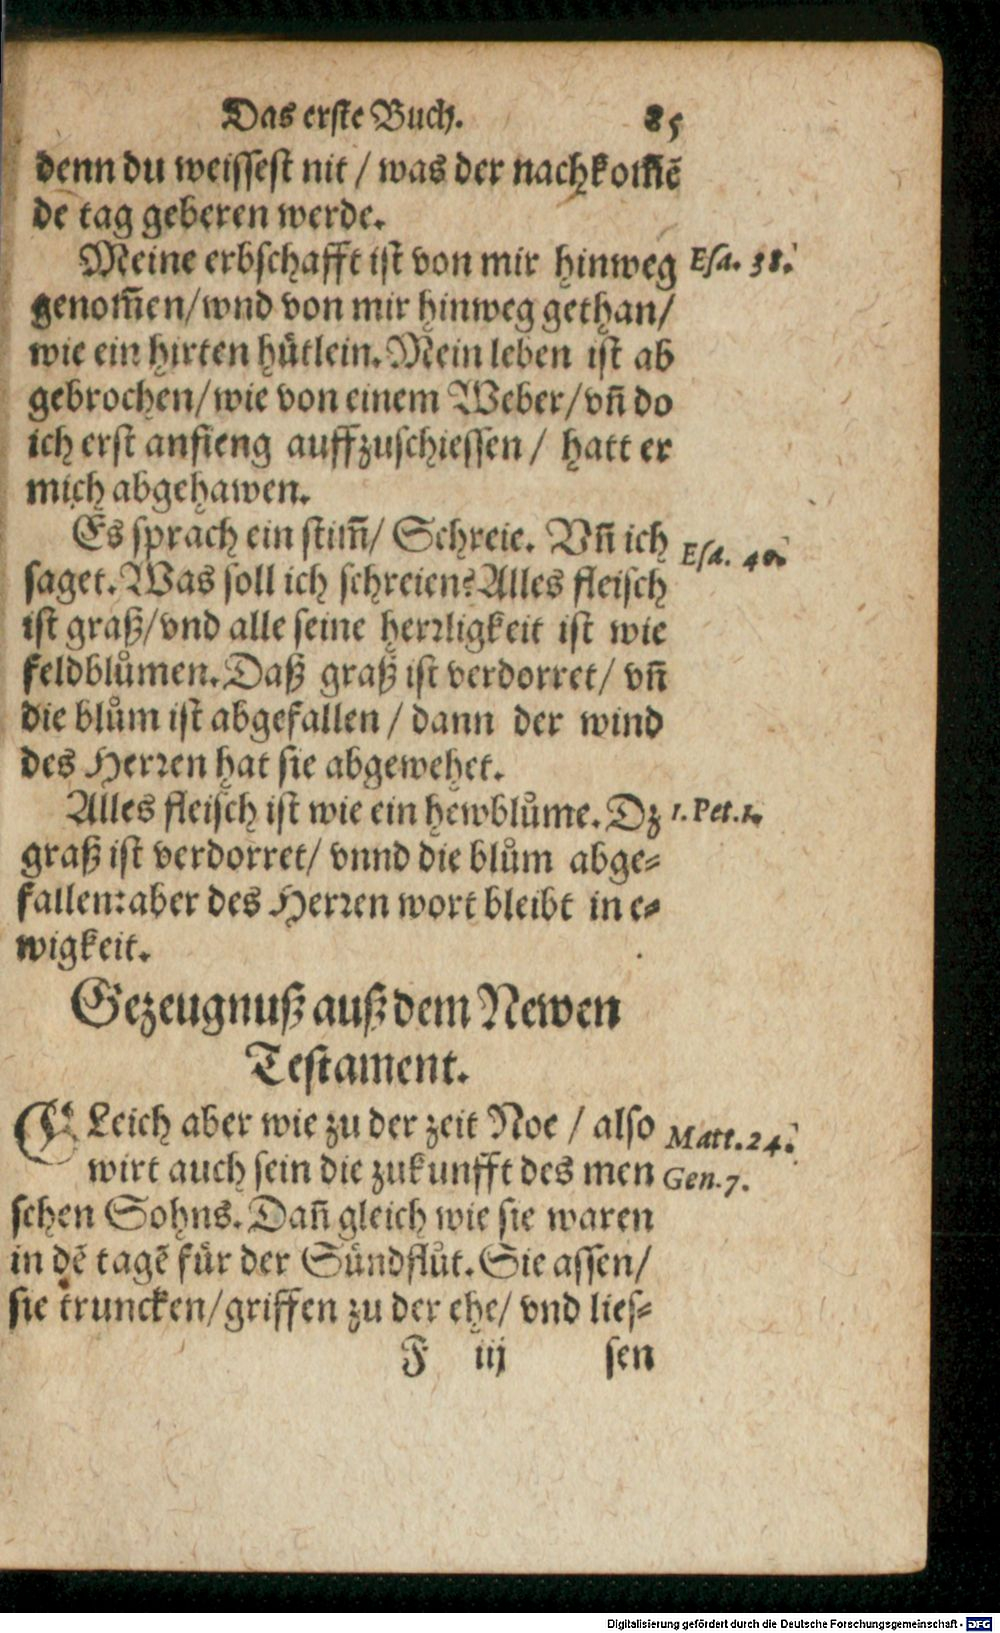 Das erste Buch. 85
denn du weissest nit / was der nachkom̄ē
de tag geberen werde.
Meine erbschafft ist von mir hinweg Esa. 38.
genom̄en/wnd von mir hinweg gethan/
wie ein hirten hütlein. Mein leben ist ab
gebrochen/wie von einem Weber/vn̄ do
ich erst anfieng auffzuschiessen / hatt er
mich abgehawen.
Es sprach ein stim̄/ Schreie. Vn̄ ich Esa. 40.
saget. Was soll ich schreien? Alles fleisch
ist graß/vnd alle seine herrligkeit ist wie
feldblůmen. Daß graß ist verdorret/ vn̄
die blům ist abgefallen / dann der wind
des Herren hat sie abgewehet.
Alles fleisch ist wie ein hewblůme. Dz 1. Pet. 1.
graß ist verdorret/ vnnd die blům abge-
fallen: aber des Herren wort bleibt in e-
wigkeit.
Gezeugnuß auß dem Newen
Testament.
GLeich aber wie zu der zeit Noe / also Matt. 24.
wirt auch sein die zukunfft des men Gen. 7.
schen Sohns. Dan̄ gleich wie sie waren
in dē tagē für der Sündflůt. Sie assen/
sie truncken/griffen zu der ehe/ vnd lies-
F iij sen
Digitalisierung gefördert durch die Deutsche Forschungsgemeinschaft - DFG